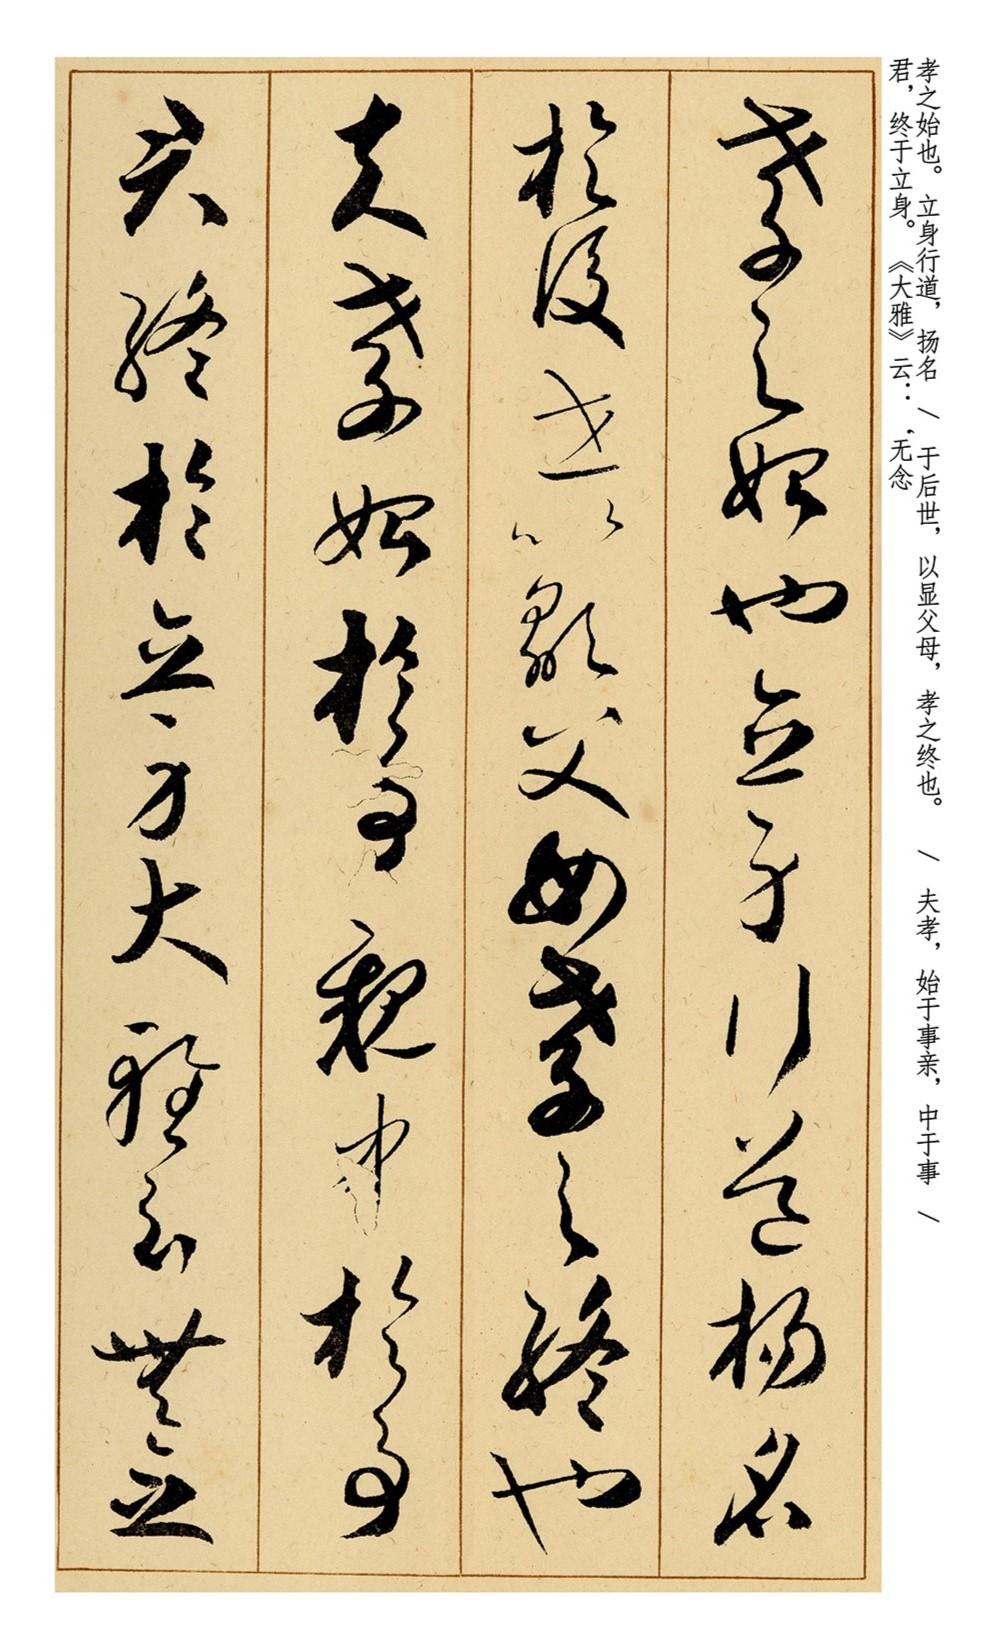 孝之始也。立身行道，扬名 \ 于后世，以显父母，孝之终也。 \ 夫孝，始于事亲，中于事 \
君，终于立身。《大雅》云：“无念
孝之始也立身行道揚名
於後世以顯父母孝之終也
夫孝始於事親中於事
君終於立身大雅云無念